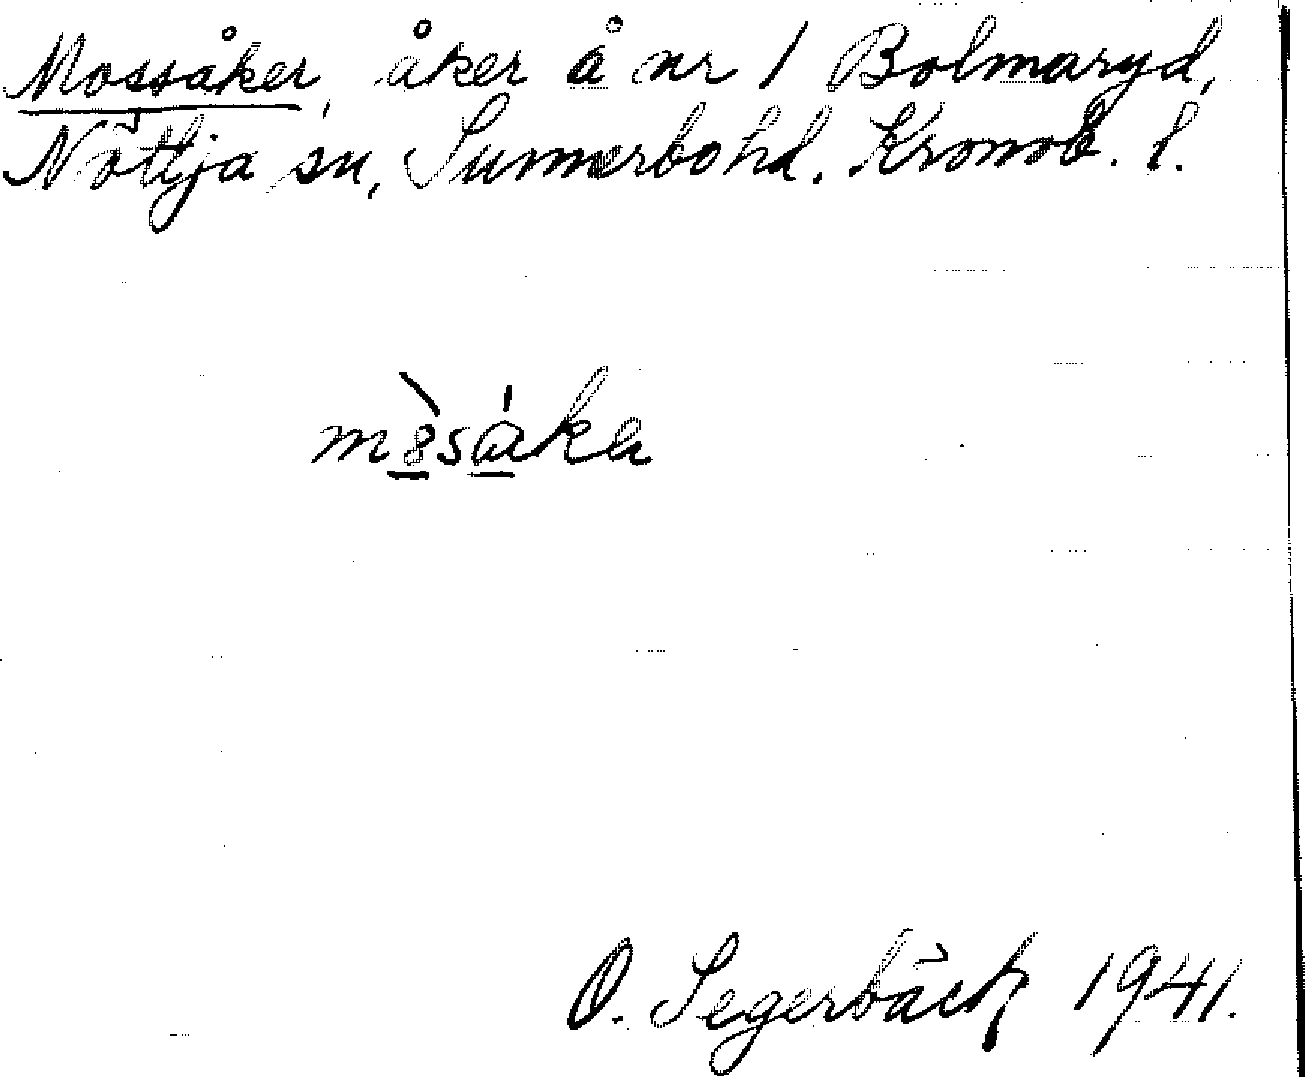 Mossåker, åker å nr 1 Bolmaryd,
Nöttja sn, Sunnerbo hd. Kronob. l.
O. Segerbäck 1941.